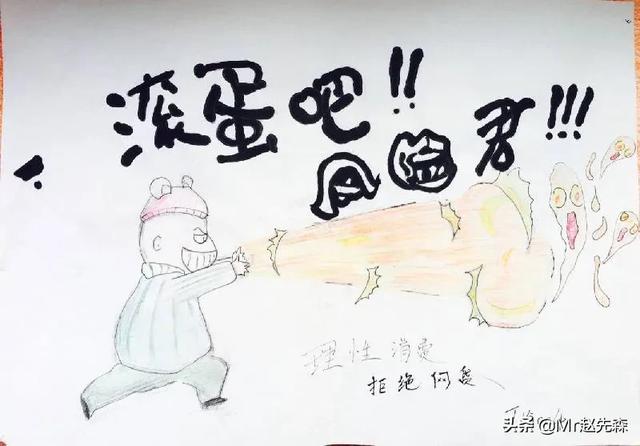 滚蛋吧!!
君!!!
理性消费
拒绝
头条 @Mr赵先森